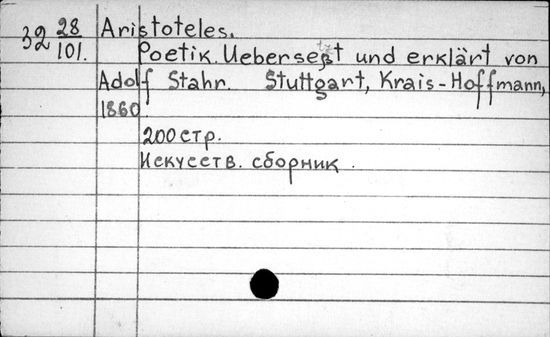 32 28/101. Aristoteles.
Poetik. Uebersetzt und erklärt von
Adolf Stahr. Stuttgart, Krais-Hoffmann,
1860
200 стр.
Искусств. сборник.